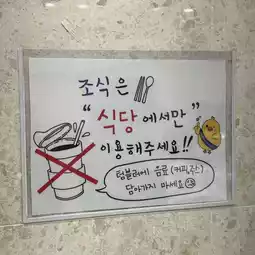 조식은
"식당에서만"
이용해주세요!!
텀블러에 음료(커피,주스)
담아가지 마세요